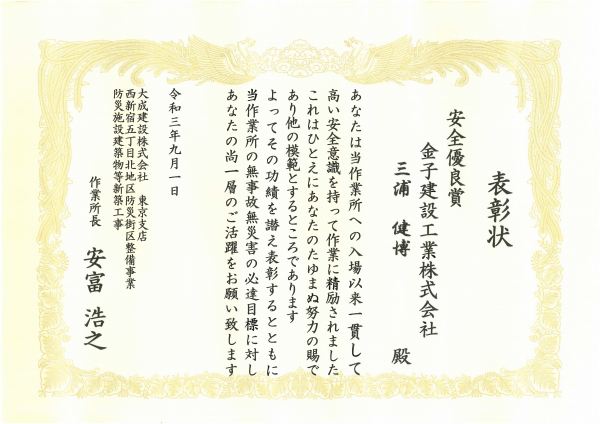 表彰状
安全優良賞
金子建設工業株式会社
三浦 健博 殿
あなたは当作業所への入場以来一貫して
高い安全意識を持って作業に精励されました
これはひとえにあなたのたゆまぬ努力の賜で
あり他の模範とするところであります
よってその功績を讃え表彰するとともに
当作業所の無事故無災害の必達目標に対し
あなたの尚一層のご活躍をお願い致します
令和三年九月一日
大成建設株式会社 東京支店
西新宿五丁目北地区防災街区整備事業
防災施設建築物等新築工事
作業所長 安富 浩之